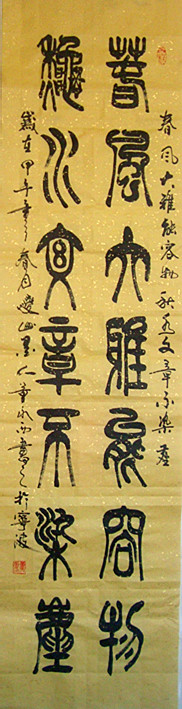 春風大雅能容物秋水文章不染塵
春風大雅能容物
秋水文章不染塵
歲在甲午年之春月山墨人書之於寧波